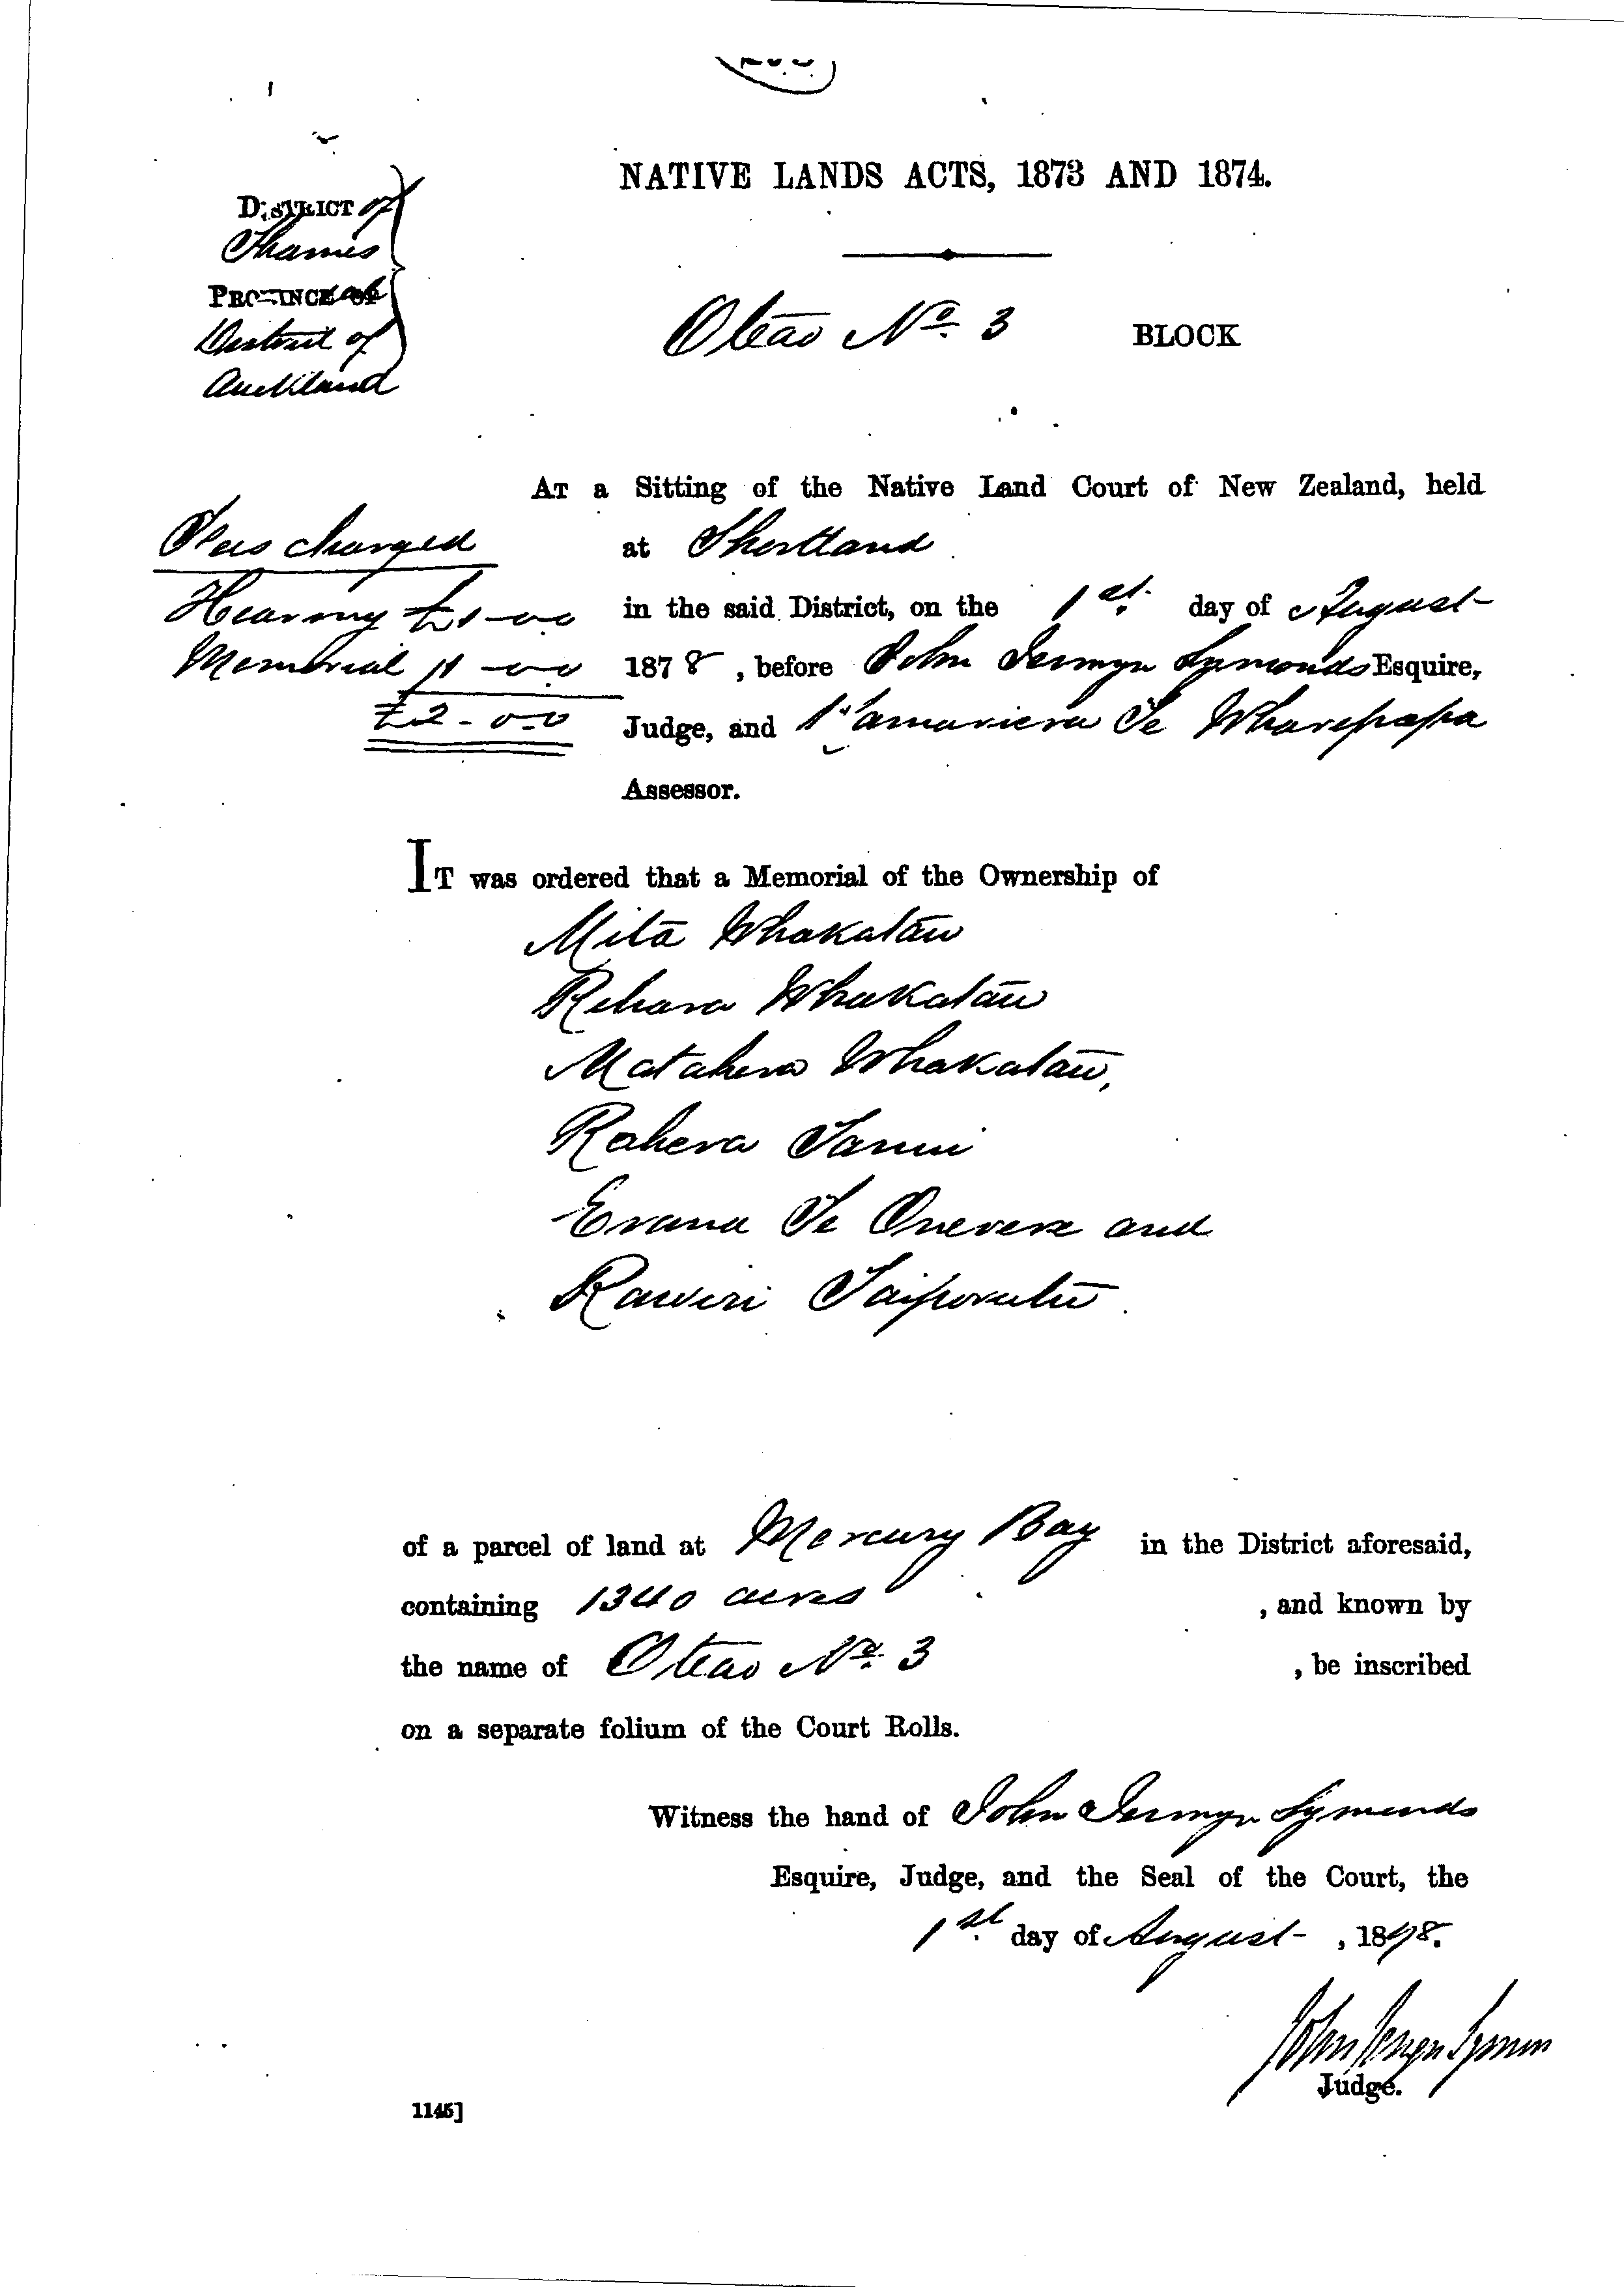 NATIVE LANDS ACTS, 1873 AND 1874.
DISTRICT of
Thames
PROVINCE OF
District of
Auckland
Oteao No. 3 BLOCK
AT a Sitting of the Native Land Court of New Zealand, held
at Shortland
in the said District, on the 1st. day of August
1878, before John Jermyn Symonds Esquire,
Judge, and Te Wharepapa
Assessor.
Fees charged
Hearing £1-0-0
Memorial 1-0-0
£2-0-0
IT was ordered that a Memorial of the Ownership of
Mita Whakatau
Rihara Whakatau
Matahera Whakatau,
Rahera Tanui
Erana Te Onerere and
Rawiri Taiporutu
of a parcel of land at Mercury Bay in the District aforesaid,
containing 1340 acres, and known by
the name of Oteao No. 3, be inscribed
on a separate folium of the Court Rolls.
Witness the hand of John Jermyn Symonds
Esquire, Judge, and the Seal of the Court, the
1st. day of August, 1878.
John Jermyn Symonds
Judge.
1145]